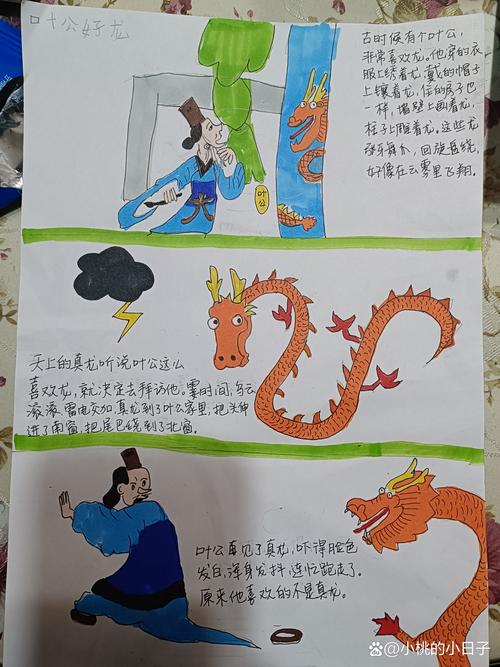 叶公好龙
古时候有个叶公，
非常喜欢龙。他穿的衣
服上绣着龙，戴的帽子
上镶着龙，住的房子也
一样，墙壁上画着龙，
柱子上雕着龙，这些龙
张牙舞爪，回旋盘绕，
好像在云雾里飞翔。
叶公
天上的真龙听说叶公这么
喜欢龙，就决定去拜访他。霎时间，乌云
滚滚，雷电交加，真龙到了叶公家里，把头伸
进了南窗，把尾巴绕到了北窗。
叶公看见了真龙，吓得脸色
发白，浑身发抖，连忙跑走了。
原来他喜欢的不是真龙。
小桃的小日子